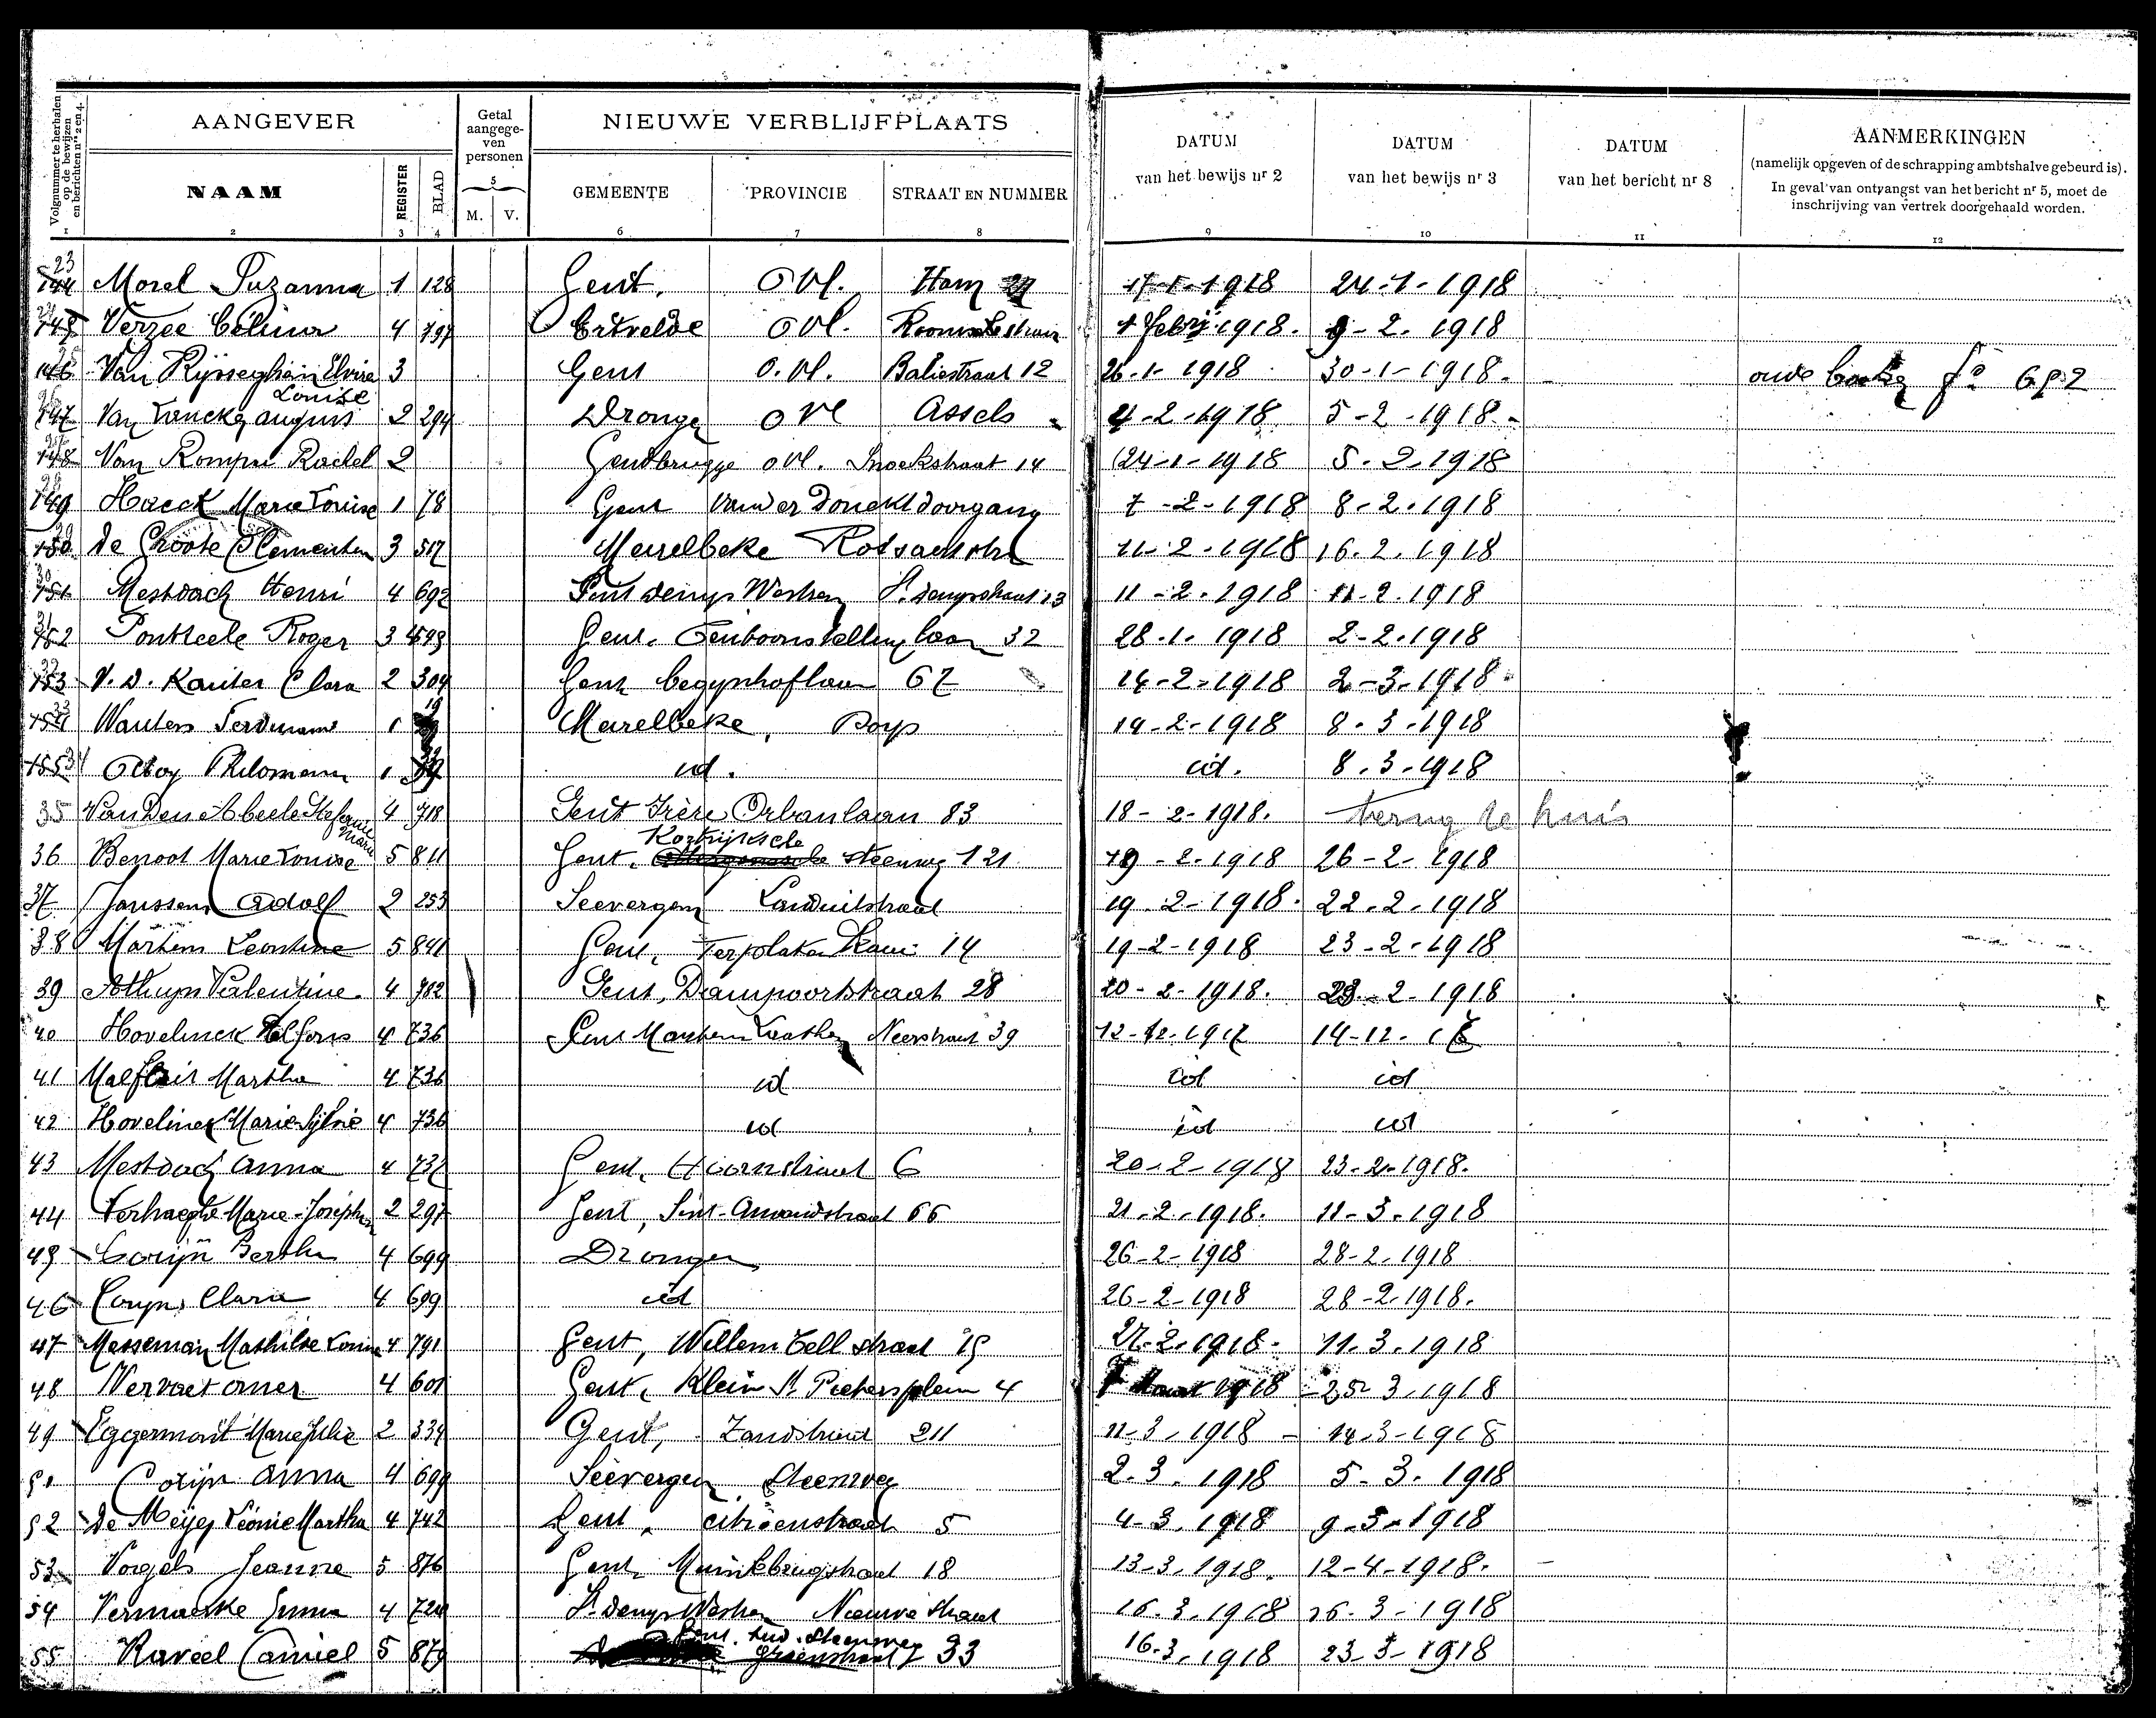 Volgnummer te herhalen op de bewijzen en berichten nrs 2 en 4.
AANGEVER
NAAM
REGISTER
BLAD
Getal aangege-ven personen
5
M. V.
NIEUWE VERBLIJFPLAATS
GEMEENTE PROVINCIE STRAAT EN NUMMER
DATUM van het bewijs nr 2
DATUM van het bewijs nr 3
DATUM van het bericht nr 8
AANMERKINGEN
(namelijk opgeven of de schrapping ambtshalve gebeurd is).
In geval van ontvangst van het bericht nr 5, moet de
inschrijving van vertrek doorgehaald worden.
1 2 3 4 6 7 8 9 10 11 12
23 144 Morel Suzanna 1 128 Gent. O Vl. Ham 17-1-1918 24-1-1918
145 Verzee 4 797 Ertvelde O Vl. 1 febrij 1918. 9-2. 1918
25 146 Van Rijsseghem Elvire Louise 3 Gent O. Vl. Baliestraat 12 26-1-1918 30-1-1918. oude f° 692
147 Van 2 294 Drongen O Vl Assels 4-2-1918 5-2-1918
148 Van Rompu Rachel 2 Gentbrugge O Vl. Snoekstraat 14 24-1-1918 5-2-1918
149 Haeck Marie Louise 1 78 Gent Van der Donckt doorgang 7-2-1918 8-2-1918
150 De Groote Clementina 3 517 Meirelbeke 11-2-1918 16.2.1918
30 151 Mestdach Henri 4 692 Sint Denijs Westrem St. Denijsstraat 13 11-2-1918 11-2.1918
31 152 Ponteele Roger 3 Gent. Tentoonstelling laan 32 28.1.1918 2-2-1918
32 153 V. D. Kauter Clara 2 304 Gent begynhoflaan 67 14-2-1918 2-3-1918
33 154 Wauters Ferdinand 1 19 Meirelbeke, Dorp 14-2-1918 8-3-1918
155 34 Philomena 1 id. id. 8.3-1918
35 Van Den Abeele Stefanie Marie 4 718 Gent Frère Orbanlaan 83 18-2-1918. terug te huis
36 Benoot Marie Louise 5 811 Gent. Kortrijksche steenweg 121 19-2-1918 26-2-1918
37 Janssens Adolf 2 253 Seevergem Landuitstraat 19-2-1918. 22.2.1918
38 Martens Leontine 5 841 Gent, Terplaten Kaai 14 19-2-1918 23-2-1918
39 Valentine. 4 782 Gent, Dampoortstraat 28 20-2-1918. 23-2-1918
40 Hovelinck Alfons 4 736 Sint Martens Laathem Neerstraat 39 12-12-1917 14-12-17
41 Malfleit Martha 4 736 id id id
42 Hovelinck Marie Sylvie 4 736 id id id
43 Mestdach Anna 4 737 Gent, Hoornstraat 6 20-2-1918 23-2-1918.
44 Verhaeghe Marie-Josephine 2 297 Gent, Sint-Amandstraat 66 21-2-1918. 11-3-1918
45 Corijn Bertha 4 699 Drongen 26-2-1918 28-2-1918
46 Coryn Clara 4 699 id 26-2-1918 28-2-1918.
47 Masseman Mathilde Louise 4 791 Gent, Willem Tell straat 19 27-2-1918 11-3-1918
48 Vervaet Omer 4 601 Gent, Klein St Pietersplein 4 1918 25-3-1918
49 Eggermont Marie Julie 2 334 Gent, Zandstraat 211 11-3-1918 14-3-1918
51 Corijn Anna 4 699 Seevergem Steenweg 2.3.1918 5-3-1918
52 De Meijer Léonie Martha 4 742 Gent, citroenstraat 5 4-3.1918 9-3-1918
53 Vogels Jeanne 5 876 Gent Muinkbrugstraat 18 13-3-1918. 12-4-1918.
54 Vermaerke Irma 4 724 St. Denijs Westrem Nieuwe straat 16.3.1918 26.3-1918
55 Raveel Camiel 5 879 33 16-3-1918 23-3-1918